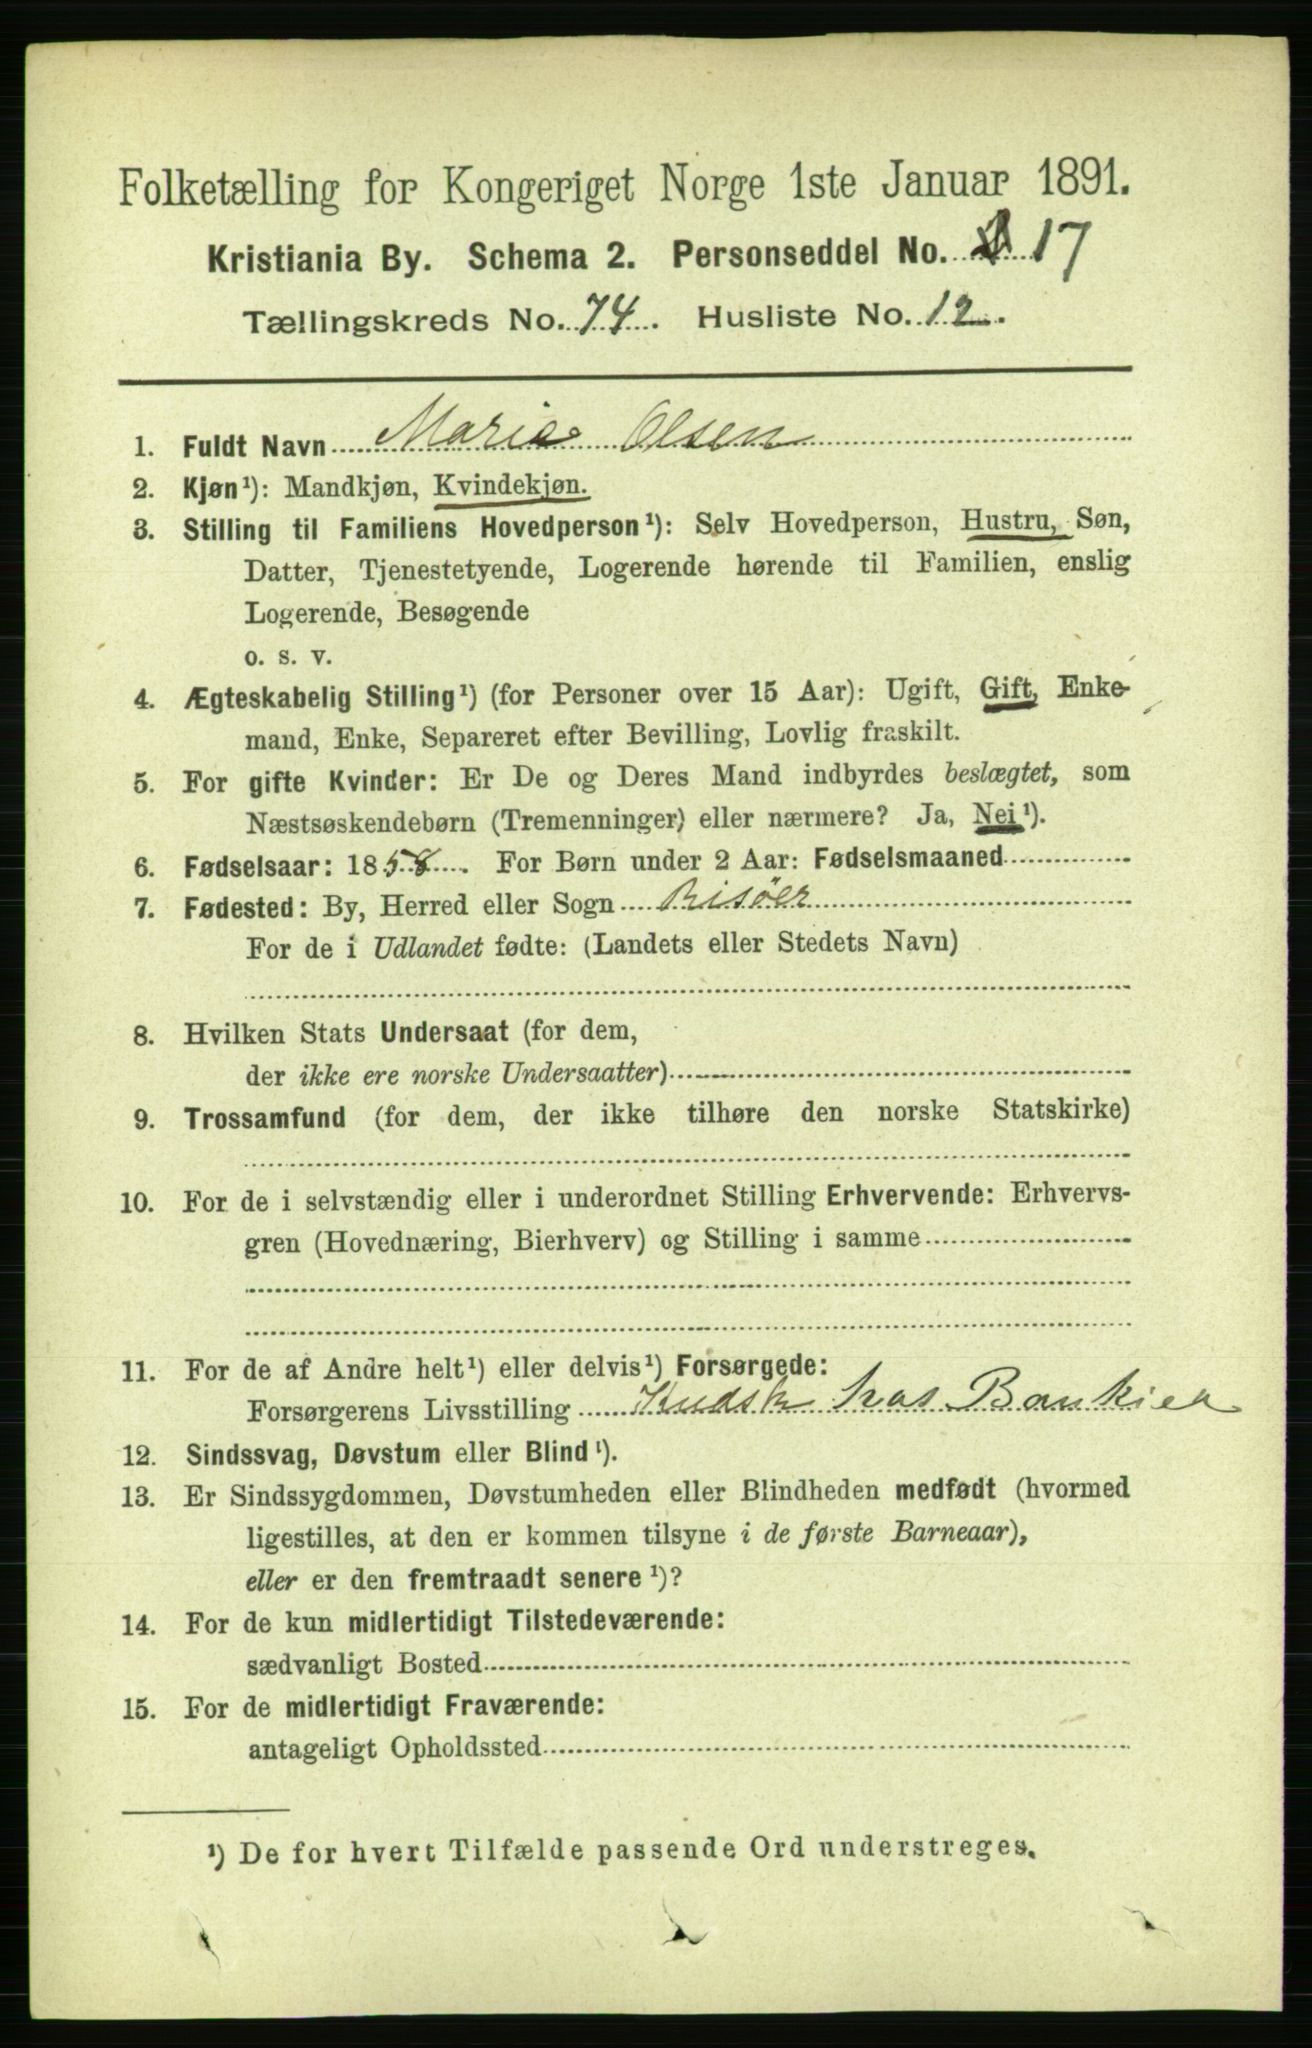 Folketælling for Kongeriget Norge 1ste Januar 1891.
Kristiania By. Schema 2. Personseddel No. 17
Tællingskreds No. 74. Husliste No. 12.
1. Fuldt Navn Marie Olsen
2. Kjøn¹): Mandkjøn, Kvindekjøn.
3. Stilling til Familiens Hovedperson¹): Selv Hovedperson, Hustru, Søn,
Datter, Tjenestetyende, Logerende hørende til Familien, enslig
Logerende, Besøgende
o. s. v.
4. Ægteskabelig Stilling¹) (for Personer over 15 Aar): Ugift, Gift, Enke-
mand, Enke, Separeret efter Bevilling, Lovlig fraskilt.
5. For gifte Kvinder: Er De og Deres Mand indbyrdes beslægtet, som
Næstsøskendebørn (Tremenninger) eller nærmere? Ja, Nei¹).
6. Fødselsaar: 1858. For Børn under 2 Aar: Fødselsmaaned
7. Fødested: By, Herred eller Sogn Risöer
For de i Udlandet fødte: (Landets eller Stedets Navn)
8. Hvilken Stats Undersaat (for dem,
der ikke ere norske Undersaatter)
9. Trossamfund (for dem, der ikke tilhøre den norske Statskirke)
10. For de i selvstændig eller i underordnet Stilling Erhvervende: Erhvervs-
gren (Hovednæring, Bierhverv) og Stilling i samme
11. For de af Andre helt¹) eller delvis¹) Forsørgede:
Forsørgerens Livsstilling Kudsk hos Bankier
12. Sindssvag, Døvstum eller Blind¹).
13. Er Sindssygdommen, Døvstumheden eller Blindheden medfødt (hvormed
ligestilles, at den er kommen tilsyne i de første Barneaar),
eller er den fremtraadt senere¹)?
14. For de kun midlertidigt Tilstedeværende:
sædvanligt Bosted
15. For de midlertidigt Fraværende:
antageligt Opholdssted
¹) De for hvert Tilfælde passende Ord understreges.